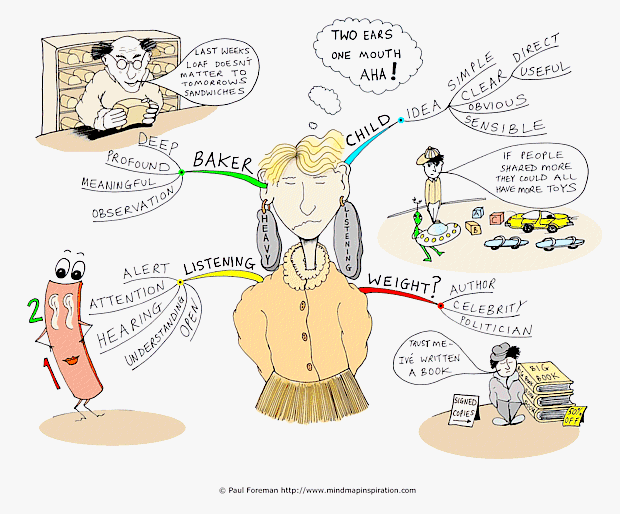 LAST WEEKS
LOAF DOESN'T
MATTER TO
TOMORROWS
SANDWICHES
TWO EARS
ONE MOUTH
AHA!
BAKER
DEEP
PROFOUND
MEANINGFUL
OBSERVATION
CHILD
IDEA
SIMPLE
CLEAR
DIRECT
USEFUL
OBVIOUS
SENSIBLE
IF PEOPLE
SHARED MORE
THEY COULD ALL
HAVE MORE TOYS
A
B
C
HEAVY
LISTENING
LISTENING
ALERT
ATTENTION
HEARING
UNDERSTANDING
OPEN
2
1
WEIGHT?
AUTHOR
CELEBRITY
POLITICIAN
TRUST ME-
I'VE WRITTEN
A BOOK
BIG
BOOK
SIGNED
COPIES
50%
OFF
© Paul Foreman http://www.mindmapinspiration.com